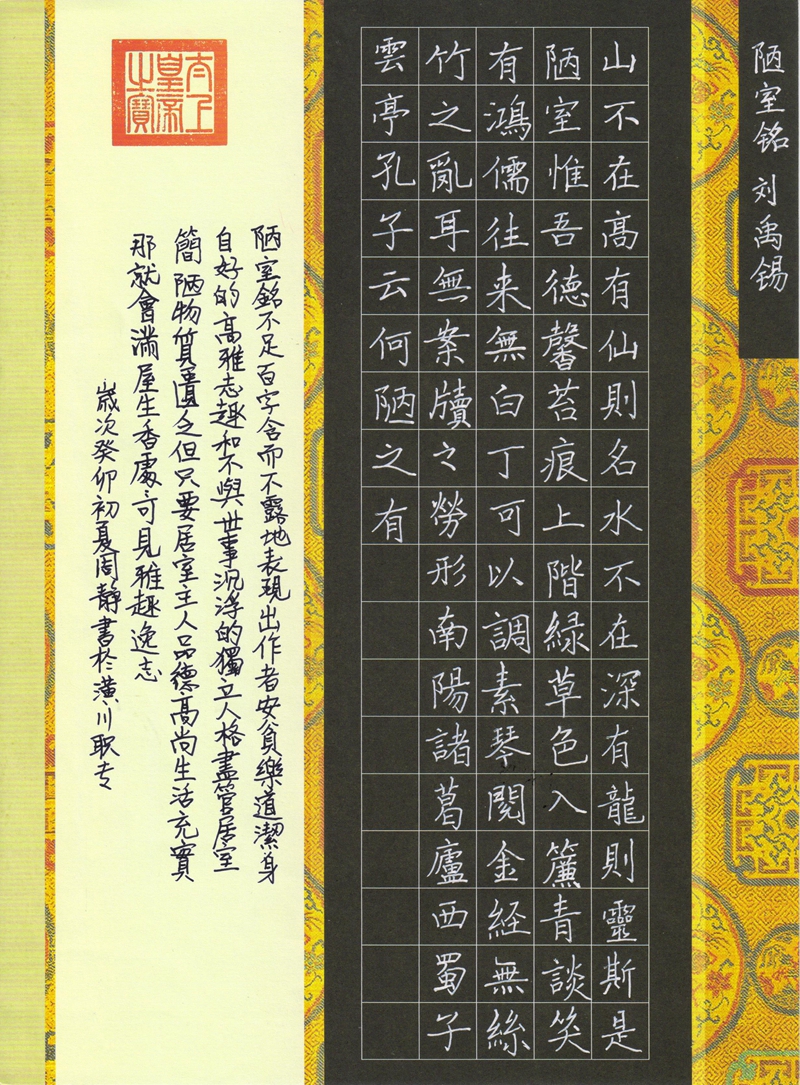 陋室铭 刘禹锡
山不在髙有仙則名水不在深有龍則靈斯是
陋室惟吾德馨苔痕上階緑草色入簾青談笑
有鴻儒往来無白丁可以調素琴閱金經無絲
竹之亂耳無案牘之勞形南陽諸葛廬西蜀子
雲亭孔子云何陋之有
陋室銘不足百字含而不露地表現出作者安貧樂道潔身
自好的高雅志趣和不與世事沉浮的獨立人格盡管居室
簡陋物質匱乏但只要居室主人品德高尚生活充實
那就會滿屋生香處〻可見雅趣逸志
歲次癸卯初夏周靜書於潢川职专
太上皇帝之寶